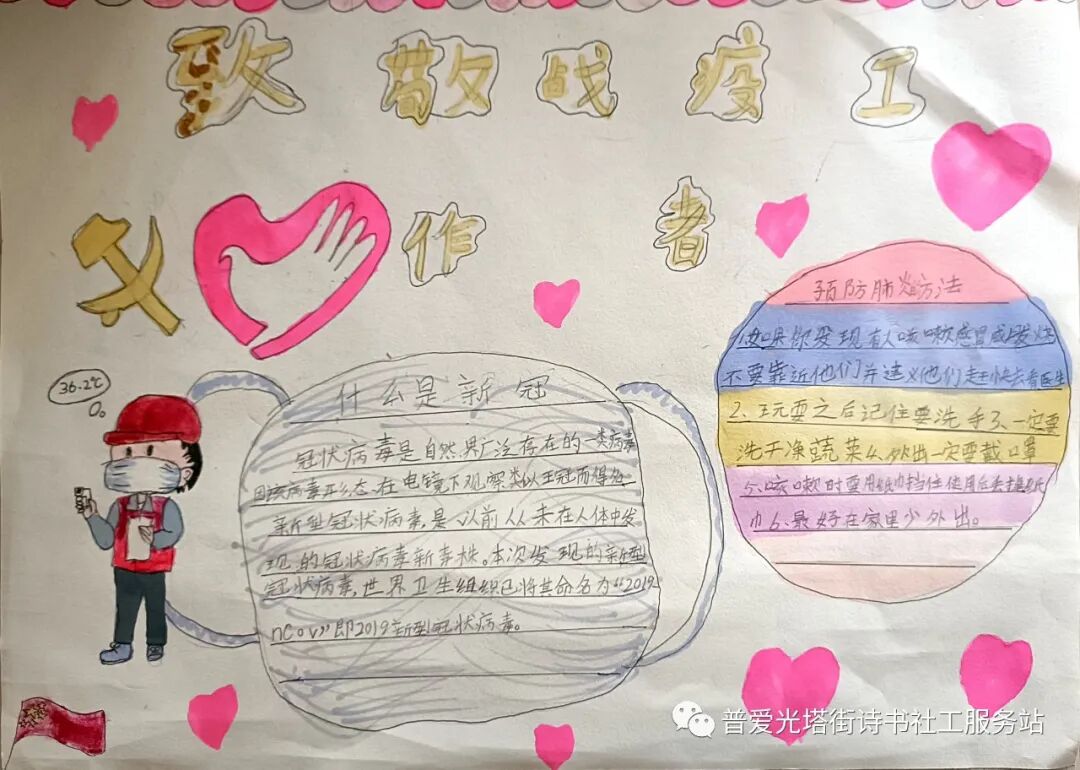 致敬战疫工
作者
36.2℃
什么是新冠
冠状病毒是自然界广泛存在的一类病毒
因该病毒形态在电镜下观察类似王冠而得名
新型冠状病毒,是以前从未在人体中发
现的冠状病毒新毒株。本次发现的新型
冠状病毒,世界卫生组织已将其命名为“2019
nCov”即2019新型冠状病毒。
预防肺炎方法
1.如果你发现有人咳嗽感冒或发烧
不要靠近他们并建议他们赶快去看医生
2、玩耍之后记住要洗手3、一定要
洗干净蔬菜4.外出一定要戴口罩
5、咳嗽时要用纸巾挡住使用后丢掉纸
巾6、最好在家里少外出。
普爱光塔街诗书社工服务站